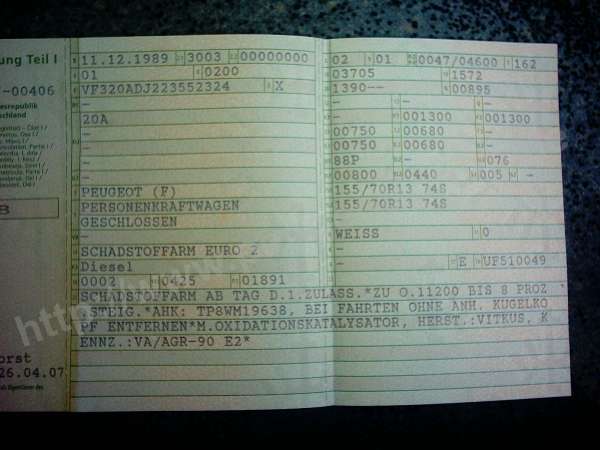 ung Teil I
-00406
11.12.1989 3003 00000000
01 0200
VF320ADJ223552324 X
-
20A
-
-
-
PEUGEOT (F)
PERSONENKRAFTWAGEN
GESCHLOSSEN
-
SCHADSTOFFARM EURO 2
Diesel
0002 0425 01891
02 01 0047/04600 162
03705 1572
1390-- 00895
- -
- 001300 001300
00750 00680 -
00750 00680 -
88P - 076
00800 0440 005 -
155/70R13 74S
155/70R13 74S
-
WEISS 0
-
- E UF510049
SCHADSTOFFARM AB TAG D.1.ZULASS.*ZU O.11200 BIS 8 PROZ
.STEIG.*AHK: TP8WM19638, BEI FAHRTEN OHNE ANH. KUGELKO
PF ENTFERNEN*M.OXIDATIONSKATALYSATOR, HERST.:VITKUS, K
ENNZ.:VA/AGR-90 E2*
orst
26.04.07
http